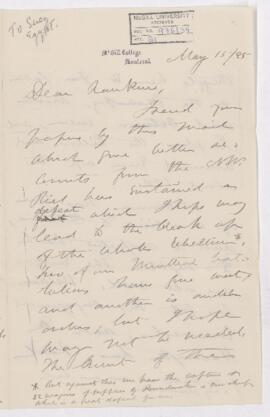 To Suez
Egypt.
McGILL UNIVERSITY
ARCHIVES
ACC. NO.
McGill College
Montreal
May 15/85
Dear Rankine,
I send you
papers by this mail
which give better ac-
counts from the N.W.
Riel has sustained a
defeat which I hope may
lead to the break up
of the whole rebellion*.
Two of our Montreal bat-
talions have gone west
and another is under
orders, but I hope
may not be needed.
The brunt of this
* But against this we have the capture of
32 wagons of supplies by
which is a great